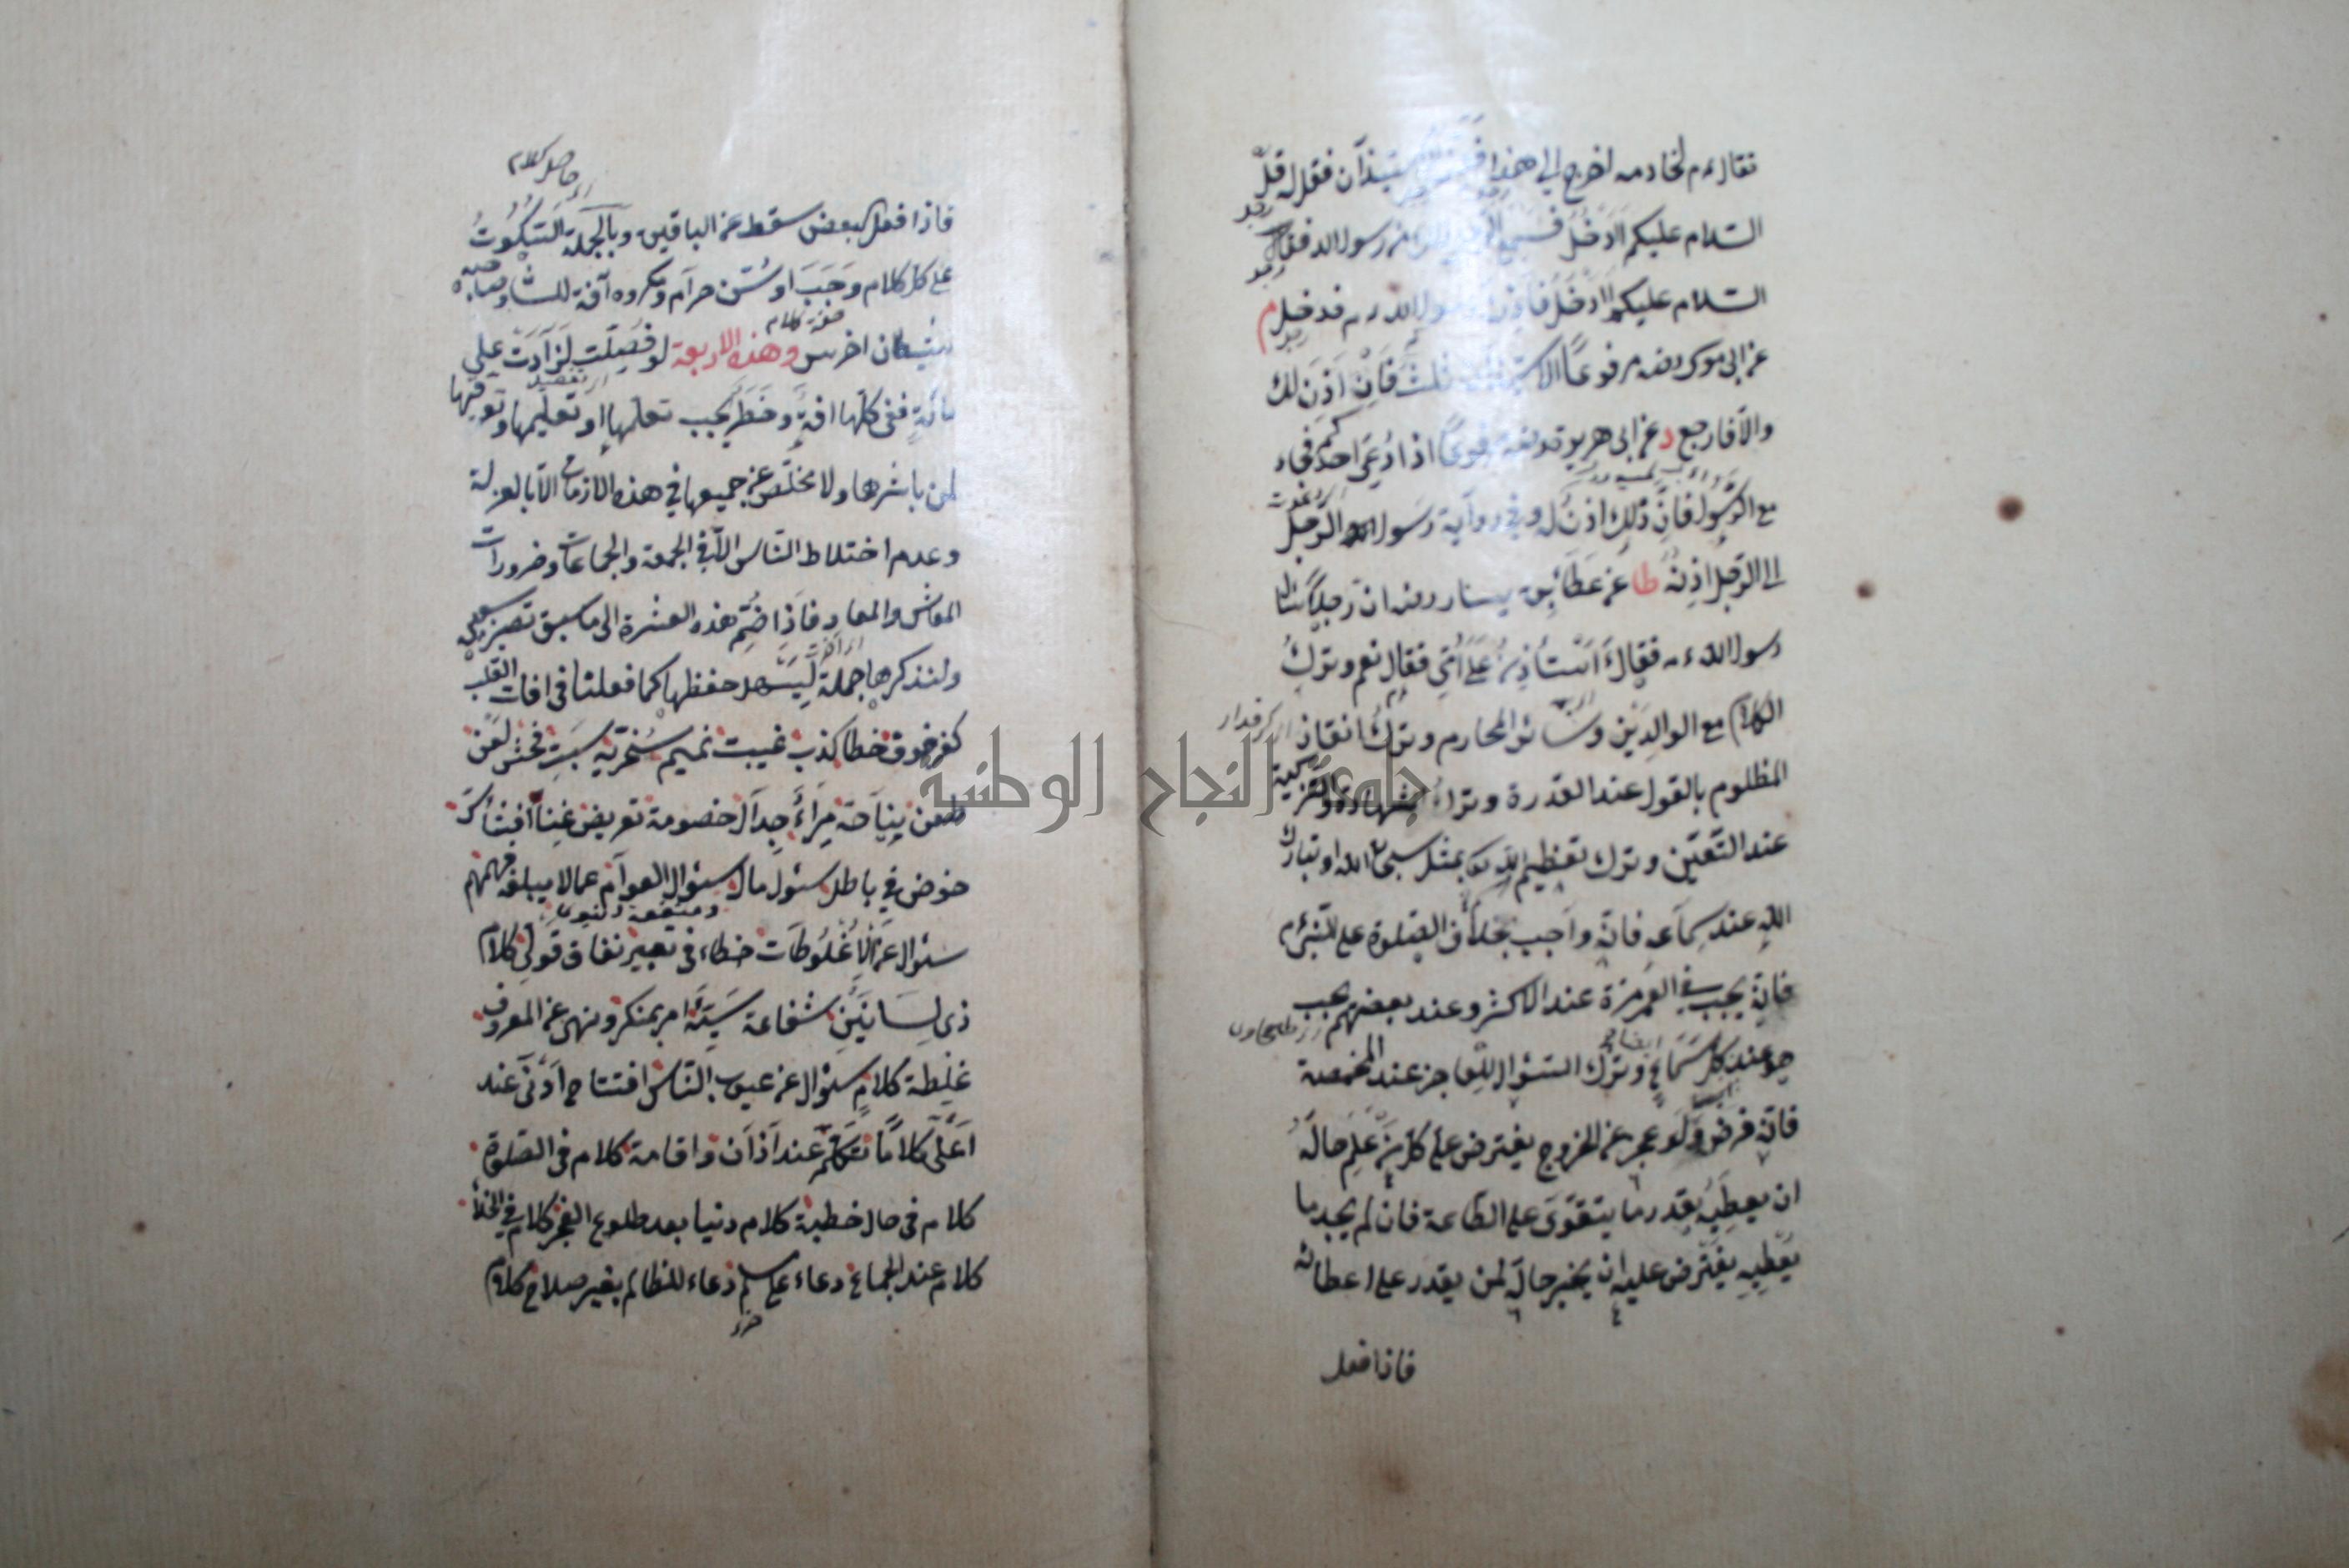 فقال ءم لخادمه اخرج الى هذا فقل له قل
السلام عليكم اَاَدْخُلُ فسمع من رسول الله فقال
السلام عليكم اَاَدْخُلُ فاذن رسول الله ءم فدخل م
عن ابى موسى رضه مرفوعًا الاستيذان ثلث فَاِنْ اَذِنَ لك
والّا فارجع د عن ابى هريرة رضه مرفوعًا اذا دُعِىَ احدكم فجاء
مع الرّسول فانّ ذلك اذنٌ له وفى رواية رسول الرجل
الى الرّجل اِذنُه طا عن عطاء بن يسار رضه ان رجلًا سال
رسول الله ءم فقال ءَاَسْتأْذِنُ عَلَى اُمّى فقال نعم وترك
الكلام مع الوالدين وسائر المحارم وترك انقاذ
المظلوم بالقول عند القدرة وترك الشهادة والتزكية
عند التّعيّن وترك تعظيم الله تعا بمثل سبحان الله او تبارك
الله عند سماعه فانّه واجب بخلاف الصّلوة على النّبى ءم
فانه يجب فى العمر مرّة عند الاكثر وعند بعضهم يجب
عند كل سَمَاعٍ وترك السّؤال للعاجز عند المخمصة
فانّه فرض ولو عجز عن الخروج يفترض على كل مَنْ عَلِمَ حالَهُ
ان يعطيَه بقدر ما يتقوّى على الطّاعة فان لم يجد ما
يعطيه يفترض عليه ان يخبر حاله لمن يقدر على اعطائه
فاذا فعل
حاصل كلام
فاذا فعل البعض سقط عن الباقين وبالجملة السّكوتُ
على كل كلام وَجَبَ او سُنَّ حرام ومكروه آفة للسان وصاحبه
صفة كلام
شيطان اخرس وهذه الاربعة لو فُصِّلت لزادت على
مائةٍ ففى كلّها آفةٌ وخطرٌ يجب تعلّمها او تعليمها وتوقّيها
لمن باشرها ولا مخلّص عن جميعها فى هذه الازمان الّا بالعزلة
وعدم اختلاط النّاس الّا فى الجمعة والجماعات وضرورات
المعاش والمعاد فاذا ضُمّ هذه العشرة الى ما سبق تصير سبعين
ولنذكرها جملة لِيَسْهل حفظها كما فعلنا فى افات القلب
كفر خوف خطا كذب غيبت نميم سُخرية سَبّ فحش لَعْن
طعن نياحة مِرَاء جدال خصومة تعريض غناء افشاء سرّ
خوض فى باطل سئول مال سئوال العوام عمّا لا يبلغه فهمهم
سئوال عن الاُغْلُوطَات خطاء فى تعبير نفاق قولى كلام
ذى لِسَانَيْنِ شفاعة سَيِّئَة امر بمنكر ونهى عن المعروف
غِلظة كلامٍ سئوال عن عيوب النّاس افتتاح اَدْنَى عند
اَعْلَى كلامًا تكلّم عند اذان واقامة كلام فى الصّلوة
كلام فى حال خطبة كلام دنيا بعد طلوع الفجر كلام فى الخلاء
كلام عند الجماع دعاء على مسلم دعاء للظالم بغير صلاح كلام
جامعة النجاح الوطنية